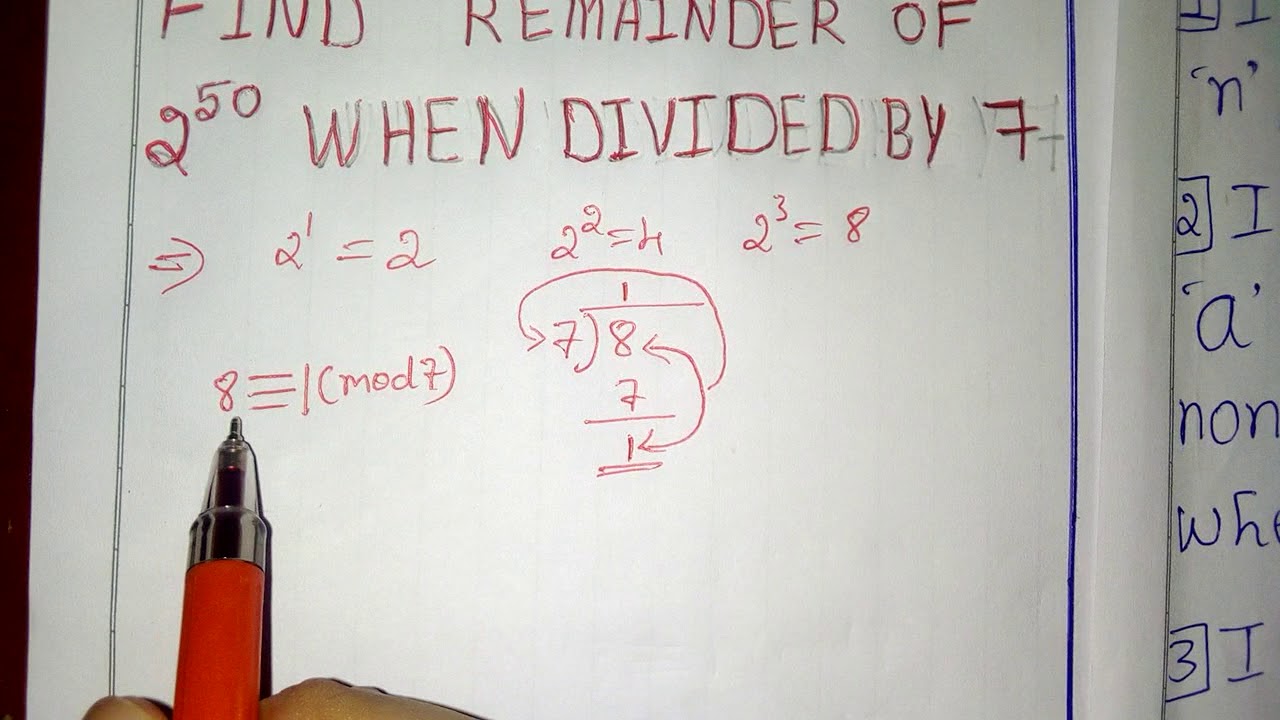 FIND REMAINDER OF
2⁵⁰ WHEN DIVIDED BY 7
⇒ 2¹ = 2 2² = 4 2³ = 8
1
7) 8
7
1
8 ≡ 1 (mod 7)
1] I
'n'
2] I
'a'
non
whe
3] I